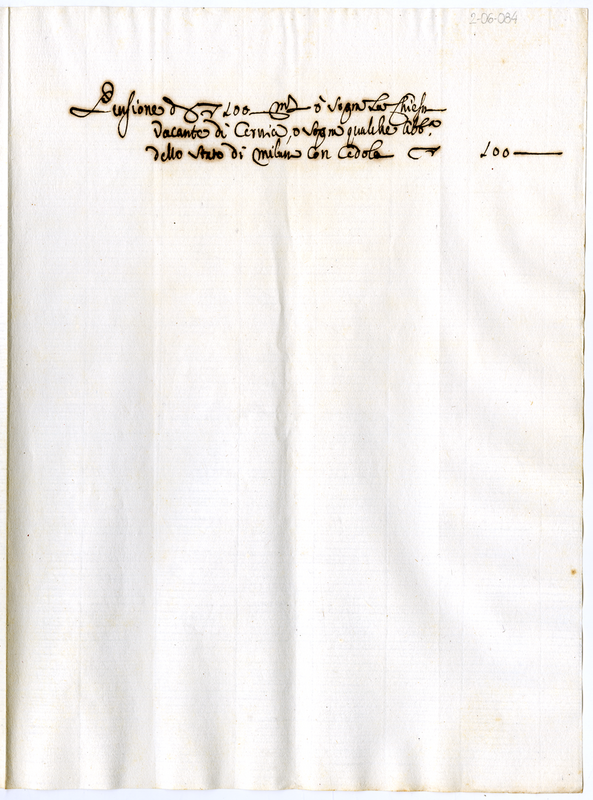 2-06-084
Pensione di 100 m.ta ò sopra la Chiesa
Vacante di Cervia, o sopra qualche Abb.a
dello Stato di Milan con Cedola 100